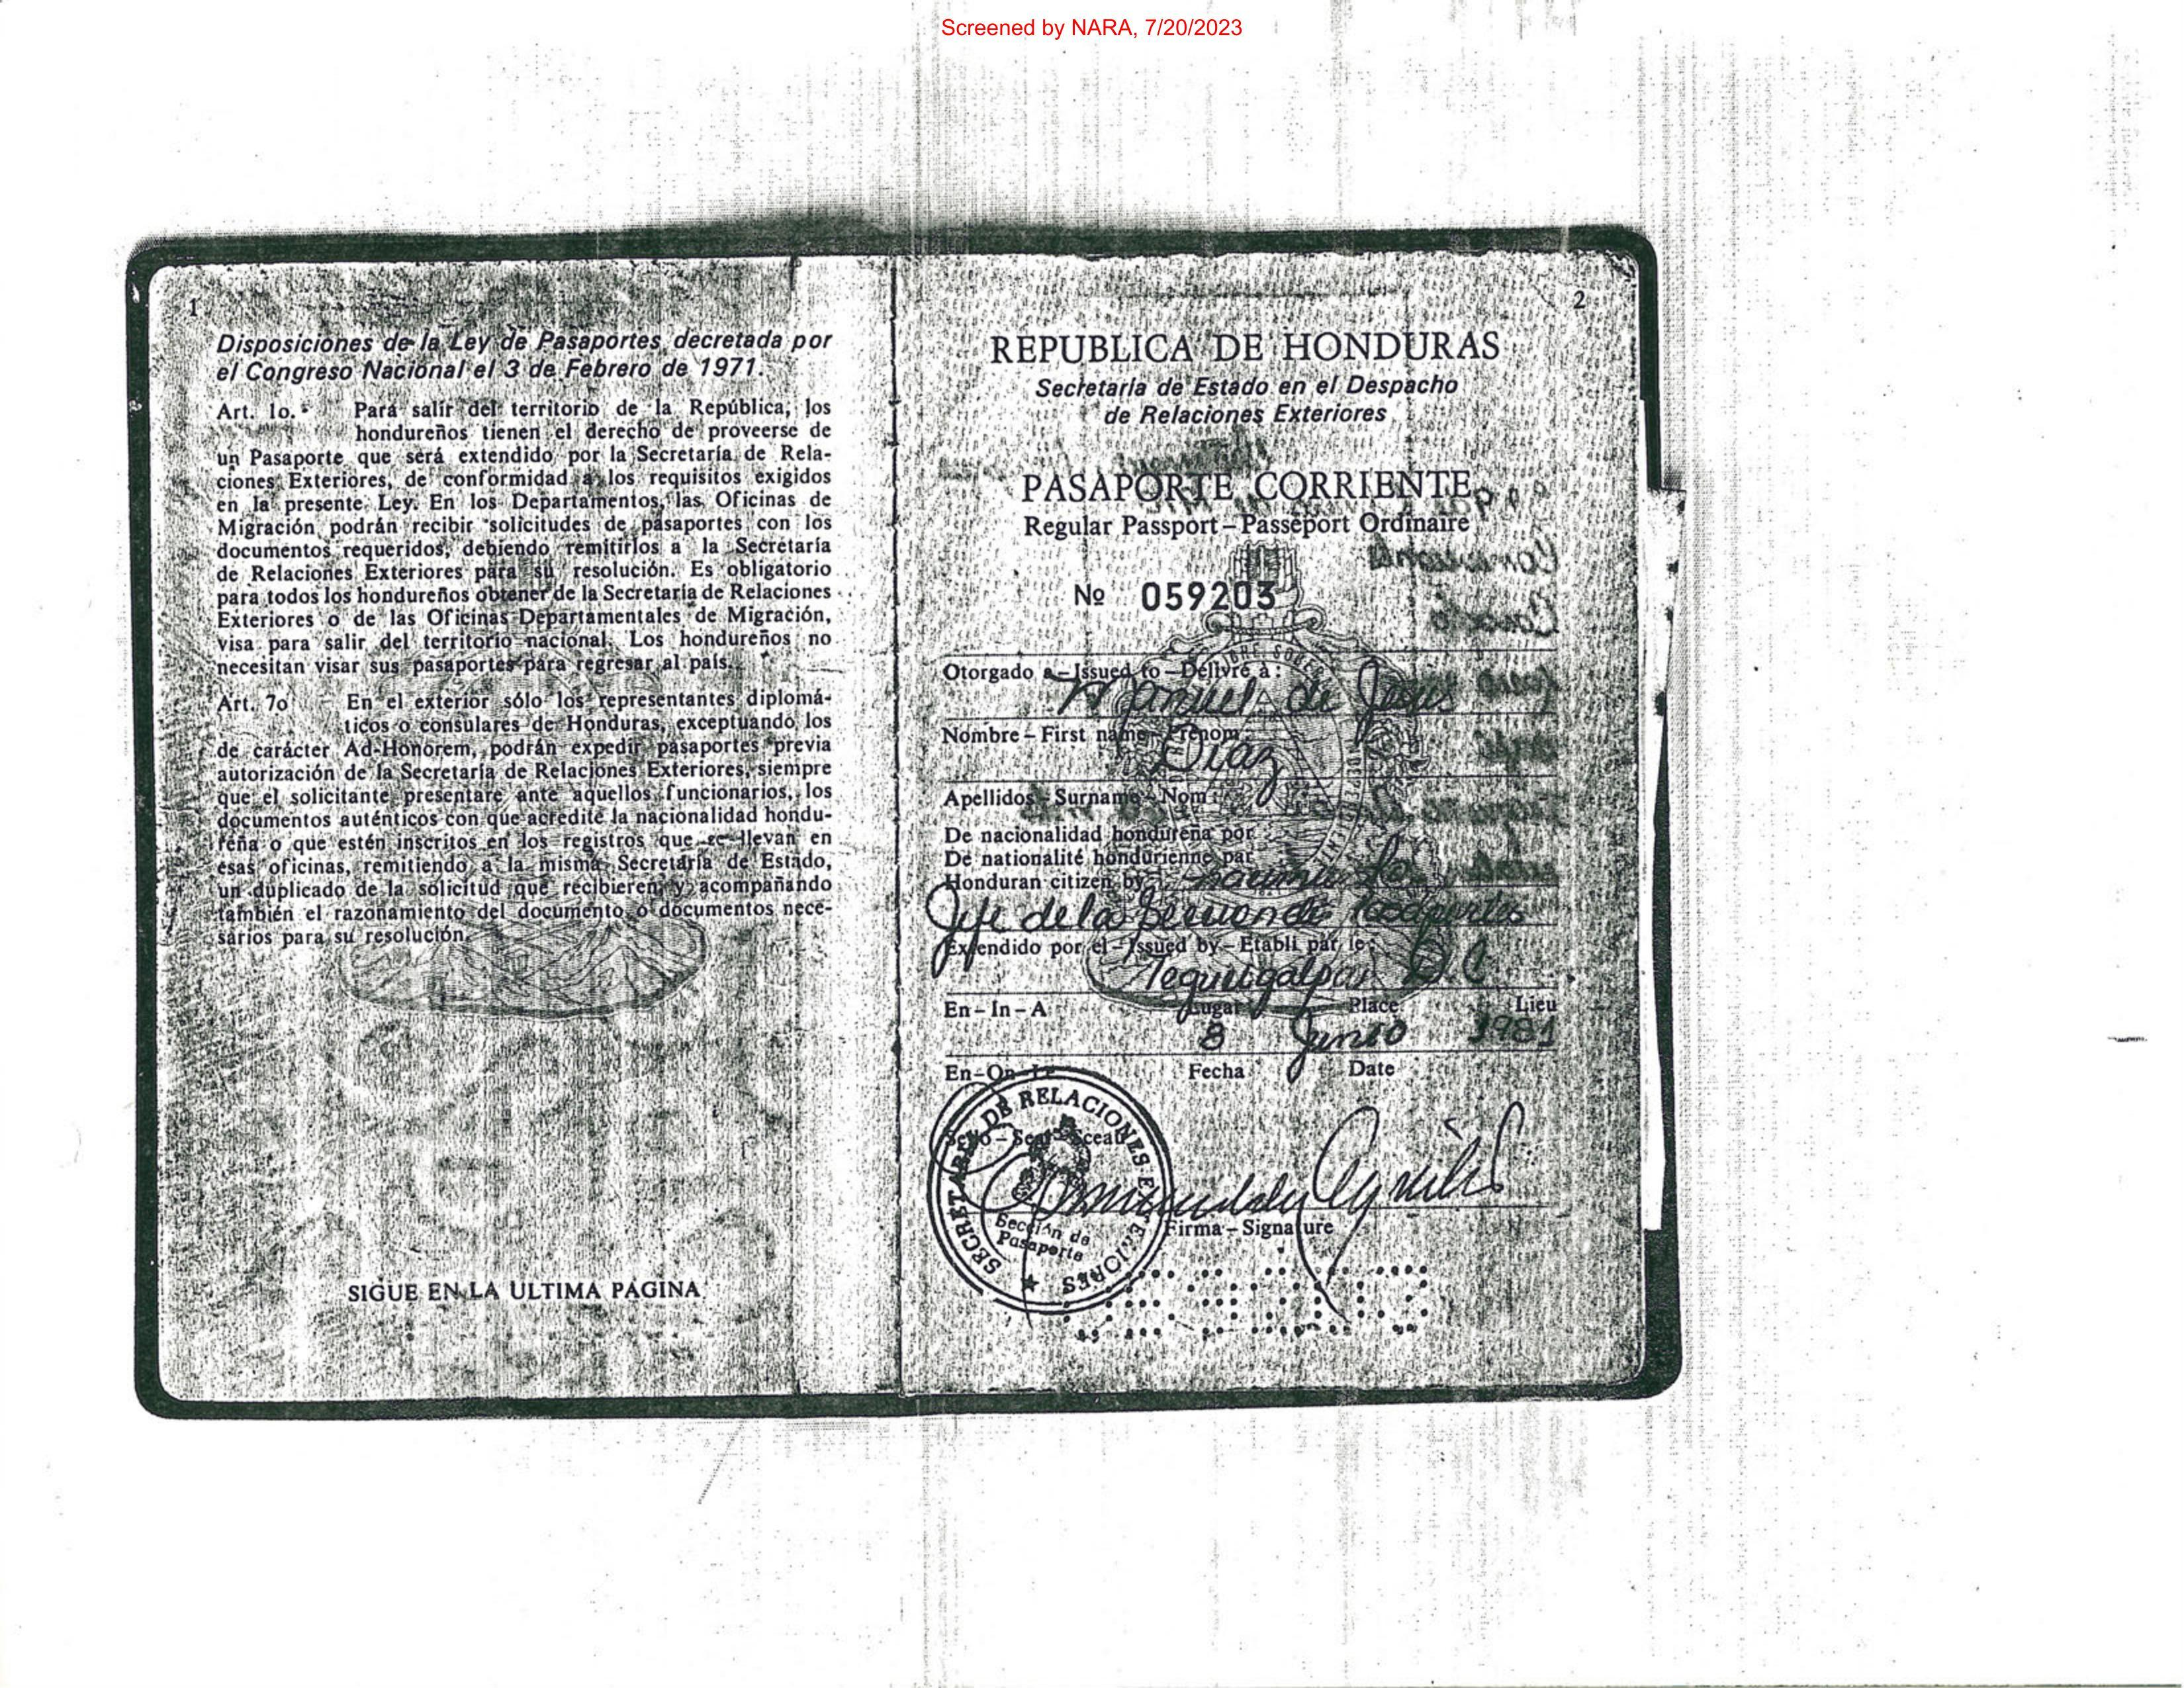 Screened by NARA, 7/20/2023
1
Disposiciones de la Ley de Pasaportes decretada por
el Congreso Nacional el 3 de Febrero de 1971.
Art. 1o. Para salir del territorio de la República, los
hondureños tienen el derecho de proveerse de
un Pasaporte que será extendido por la Secretaría de Rela-
ciones Exteriores, de conformidad a los requisitos exigidos
en la presente Ley. En los Departamentos, las Oficinas de
Migración podrán recibir solicitudes de pasaportes con los
documentos requeridos, debiendo remitirlos a la Secretaría
de Relaciones Exteriores para su resolución. Es obligatorio
para todos los hondureños obtener de la Secretaría de Relaciones
Exteriores o de las Oficinas Departamentales de Migración,
visa para salir del territorio nacional. Los hondureños no
necesitan visar sus pasaportes para regresar al país.
Art. 7o En el exterior sólo los representantes diplomá-
ticos o consulares de Honduras, exceptuando los
de carácter Ad-Honorem, podrán expedir pasaportes previa
autorización de la Secretaría de Relaciones Exteriores, siempre
que el solicitante presentare ante aquellos funcionarios, los
documentos auténticos con que acredite la nacionalidad hondu-
reña o que estén inscritos en los registros que se llevan en
esas oficinas, remitiendo a la misma Secretaría de Estado,
un duplicado de la solicitud que recibieren y acompañando
también el razonamiento del documento o documentos nece-
sarios para su resolución.
SIGUE EN LA ULTIMA PAGINA
2
REPUBLICA DE HONDURAS
Secretaría de Estado en el Despacho
de Relaciones Exteriores
PASAPORTE CORRIENTE
Regular Passport – Passeport Ordinaire
Nº 059203
Otorgado a – Issued to – Délivré à:
Manuel de Jesus
Nombre – First name – Prenom:
Diaz
Apellidos – Surname – Nom:
De nacionalidad hondureña por
De nationalité hondurienne par
Honduran citizen by:
Jefe de la
Extendido por el – Issued by – Etabli par le:
Tegucigalpa D.C
En – In – A Lugar Place Lieu
8 Junio 1981
En – On – Le Fecha Date
Sello – Seal – Sceau
SECRETARIA DE RELACIONES EXTERIORES
Sección de
Pasaporte
Firma – Signature